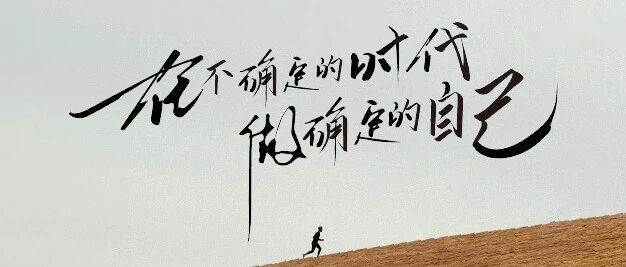 在不确定的时代
做确定的自己